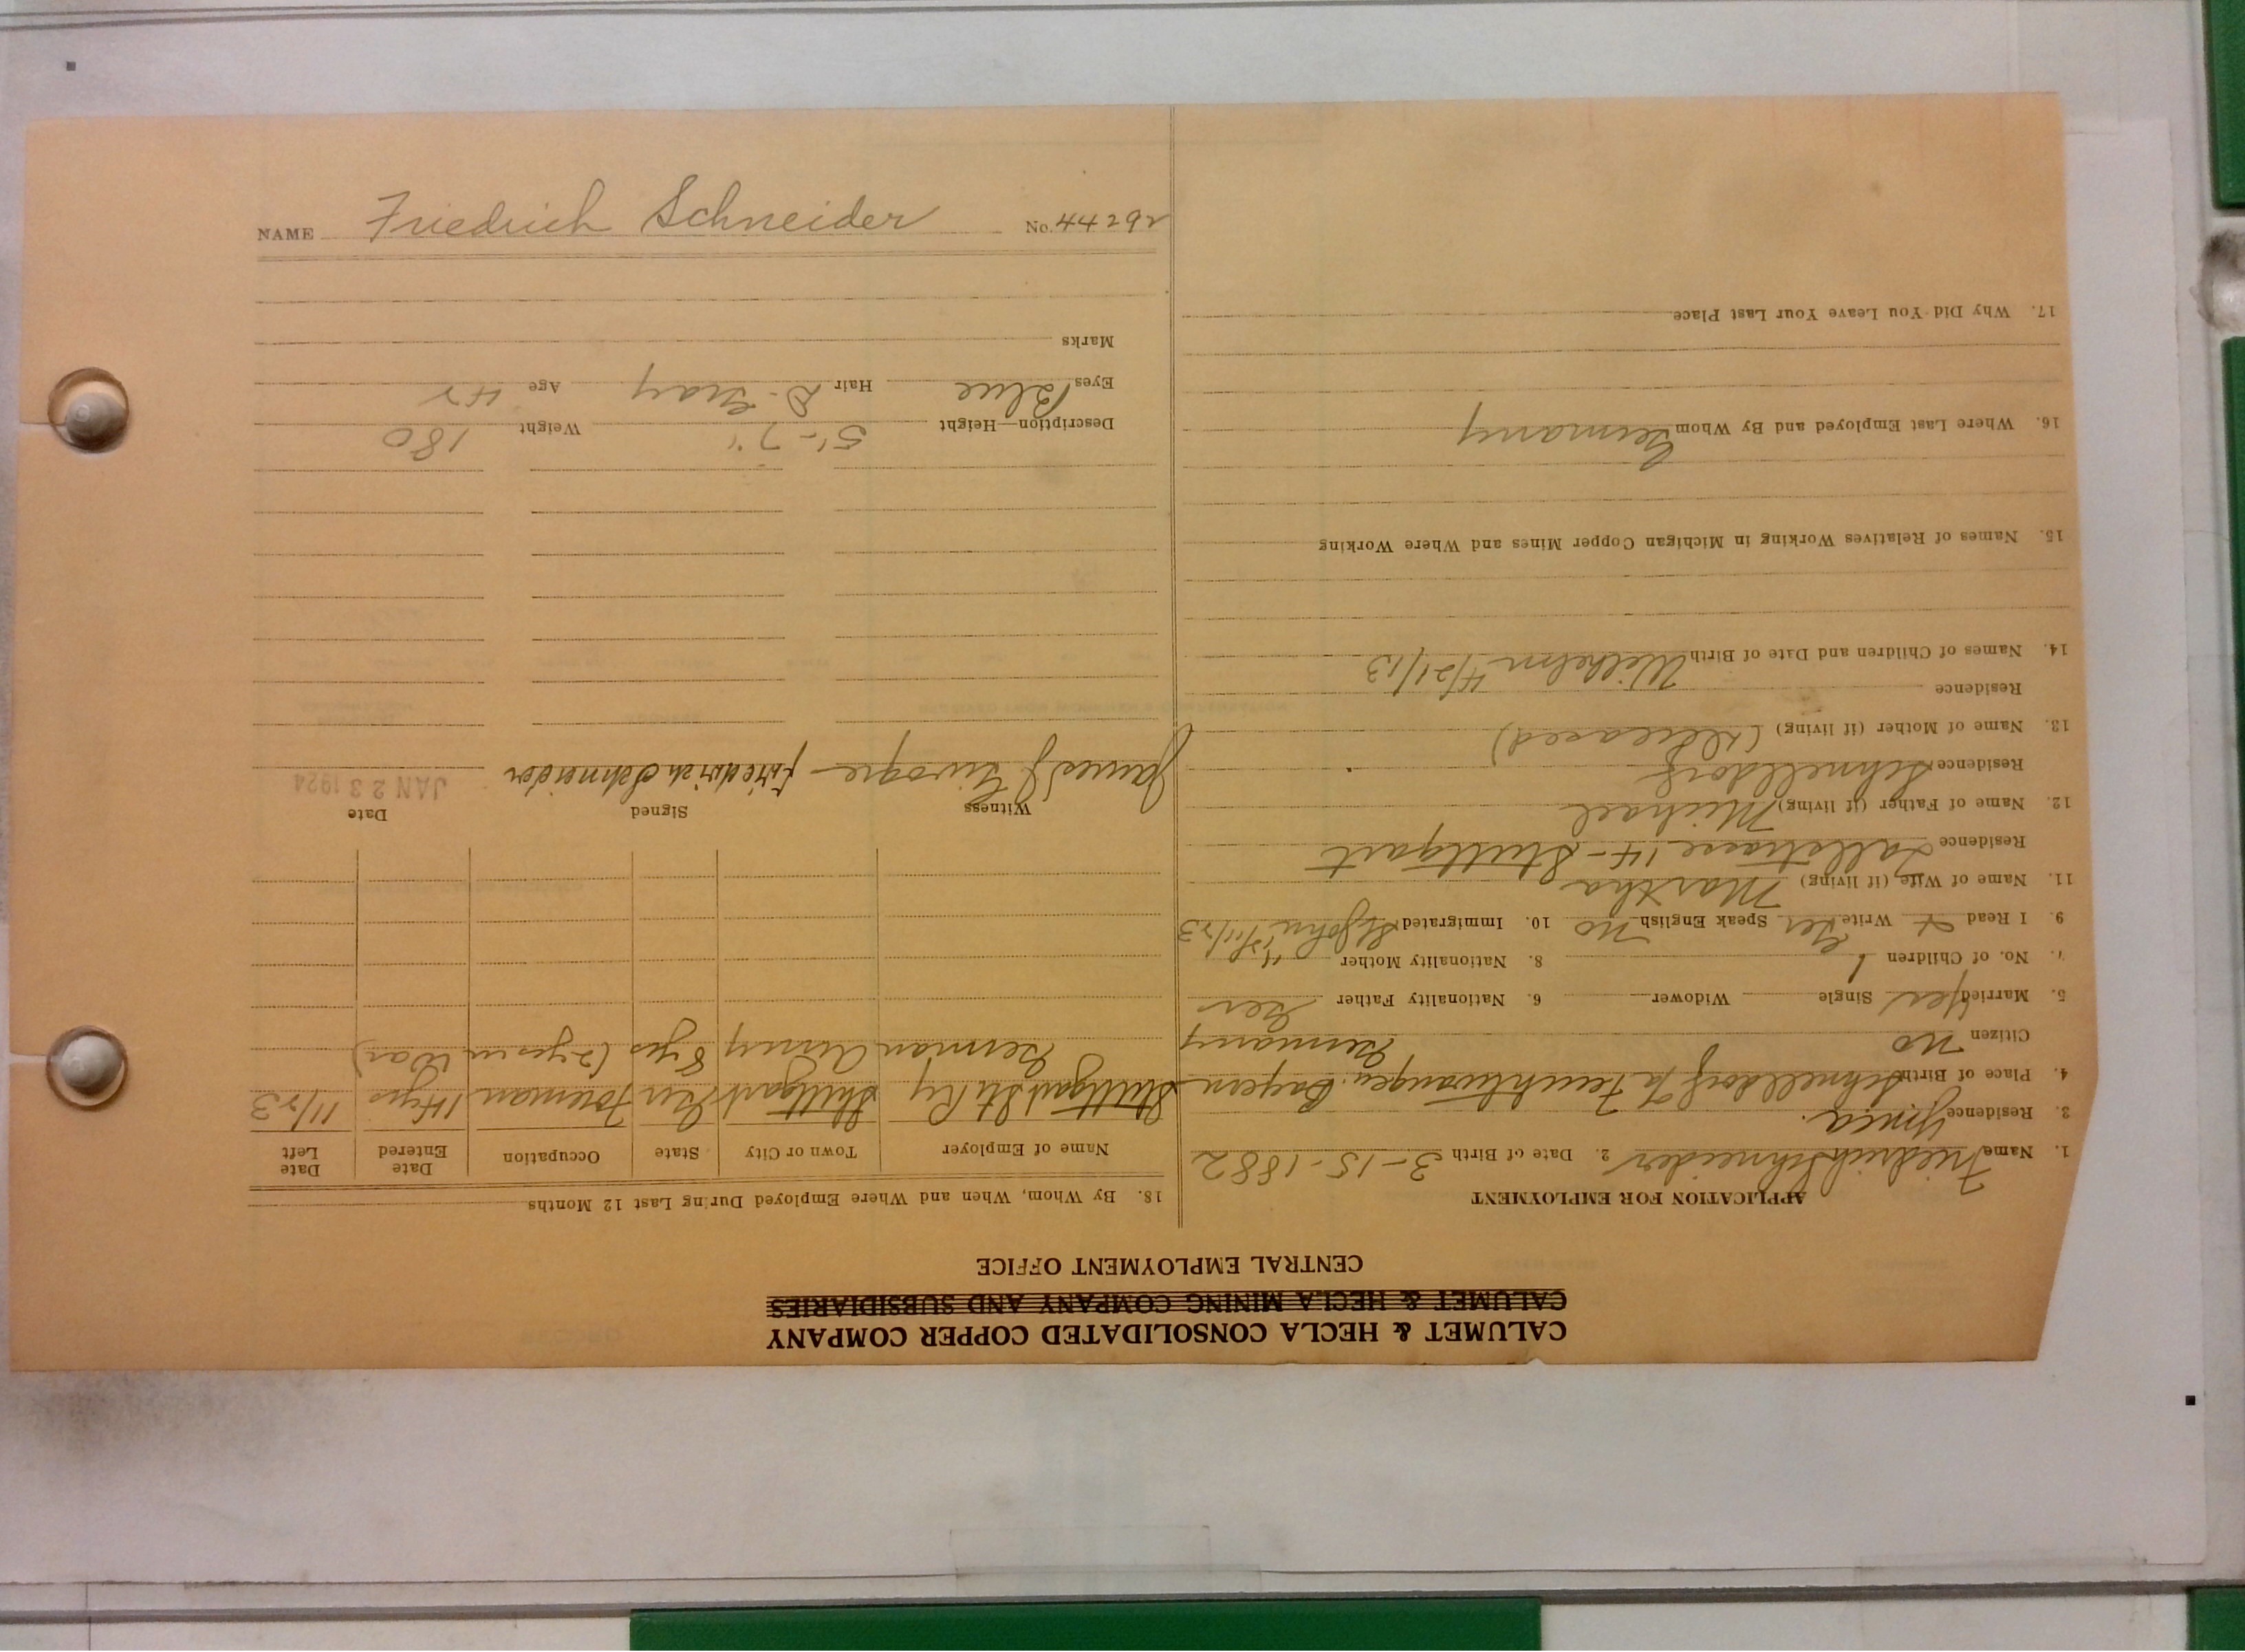 CALUMET & HECLA CONSOLIDATED COPPER COMPANY
CALUMET & HECLA MINING COMPANY AND SUBSIDIARIES
CENTRAL EMPLOYMENT OFFICE
APPLICATION FOR EMPLOYMENT
1. Name Friedrich Schneider 2. Date of Birth 3-15-1882
3. Residence
4. Place of Birth Schnelldorf Feuchtwangen Bayern
Citizen no Germany
5. Married yes Single Widower 6. Nationality Father Ger
7. No. of Children 1 8. Nationality Mother "
9. I Read & Write Ger Speak English no 10. Immigrated St John 12/11/23
11. Name of Wife (if living) Martha
Residence 14 - Stuttgart
12. Name of Father (if living) Michael
Residence Schnelldorf
13. Name of Mother (if living) (deceased)
Residence
14. Names of Children and Date of Birth Wilhelm 4/21/13
15. Names of Relatives Working in Michigan Copper Mines and Where Working
16. Where Last Employed and By Whom Germany
17. Why Did You Leave Your Last Place
18. By Whom, When and Where Employed During Last 12 Months
Name of Employer Town or City State Occupation Date Entered Date Left
Stuttgart St Ry Stuttgart Ger Foreman 14 yrs 11/23
German Army 8 yrs (2 yrs in War)
Witness Signed Date
James J. Friedrich Schneider JAN 23 1924
Description—Height 5'-7" Weight 180
Eyes Blue Hair D. Gray Age 42
Marks
NAME Friedrich Schneider No. 44292